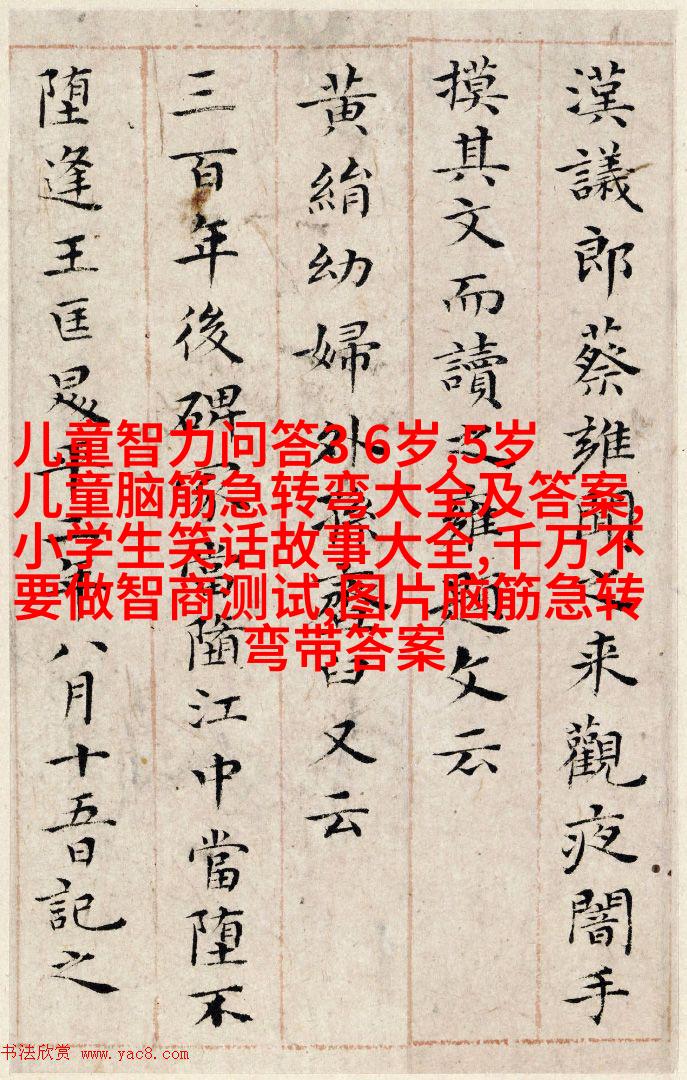 漢議郎蔡雍聞之来觀夜闇手
摸其文而讀之雍題文云
黃絹幼婦外孫齏臼又云
三百年後碑冢當墮江中當堕不
堕逢王匡昇平二年八月十五日記之
儿童智力问答3 6岁,5岁
儿童脑筋急转弯大全及答案,
小学生笑话故事大全,千万不
要做智商测试,图片脑筋急转
弯带答案
书法欣赏 www.yac8.com